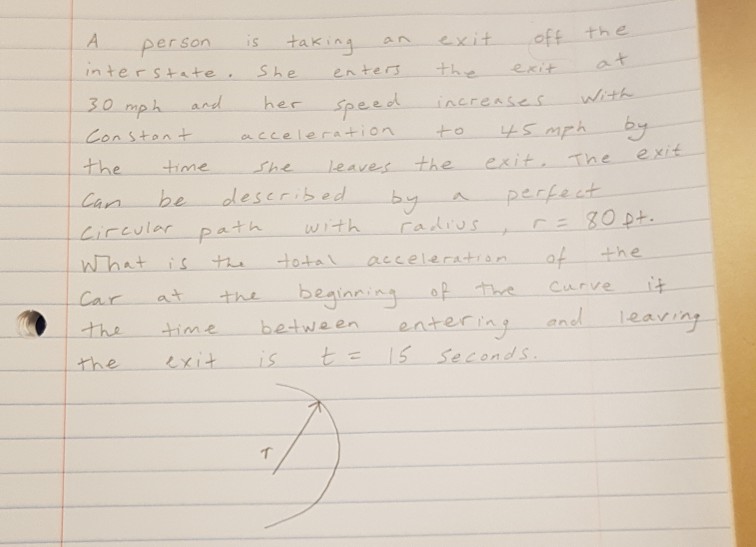 A person is taking an exit off the
interstate. She enters the exit at
30 mph and her speed increases with
constant acceleration to 45 mph by
the time she leaves the exit. The exit
can be described by a perfect
circular path with radius, r = 80 ft.
What is the total acceleration of the
car at the beginning of the curve if
the time between entering and leaving
the exit is t = 15 seconds.
r